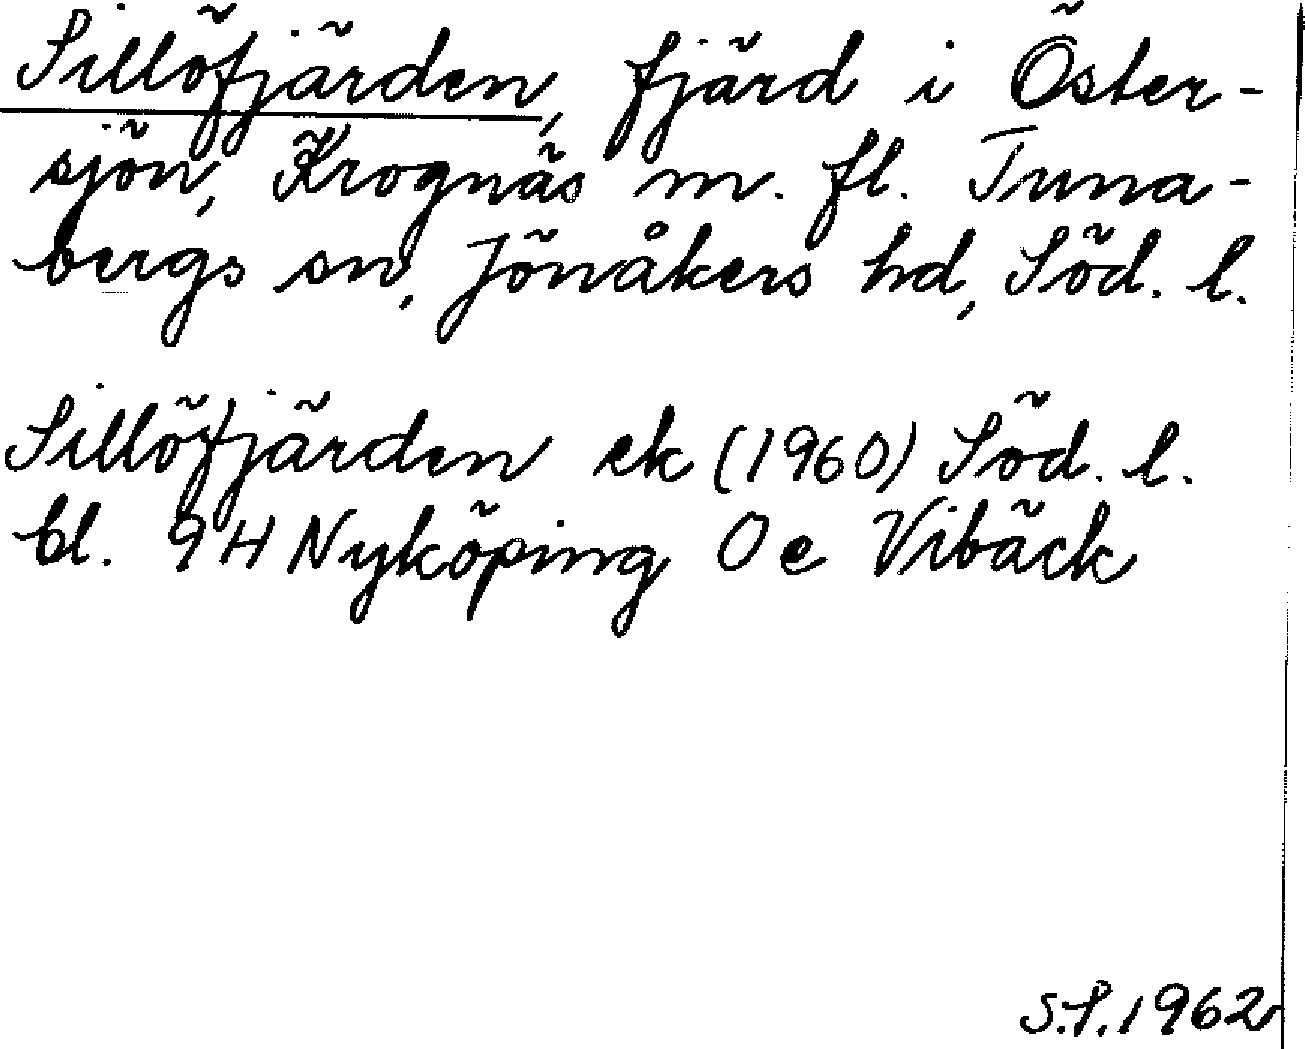 Sillöfjärden, fjärd i Öster-
sjön, Krognäs m. fl. Tuna-
bergs sn, Jönåkers hd, Söd. l.
Sillöfjärden ek (1960) Söd. l.
bl. 9H Nyköping 0e Vibäck
S.S. 1962